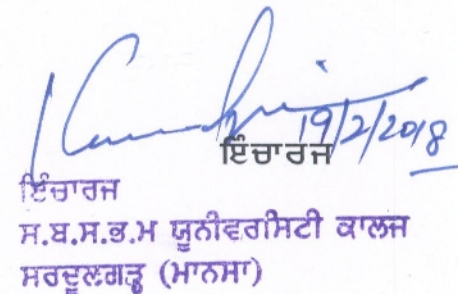 19/2/2018
ਇੰਚਾਰਜ
ਇੰਚਾਰਜ
ਸ.ਬ.ਸ.ਭ.ਮ ਯੂਨੀਵਰਸਿਟੀ ਕਾਲਜ
ਸਰਦੂਲਗੜ੍ਹ (ਮਾਨਸਾ)